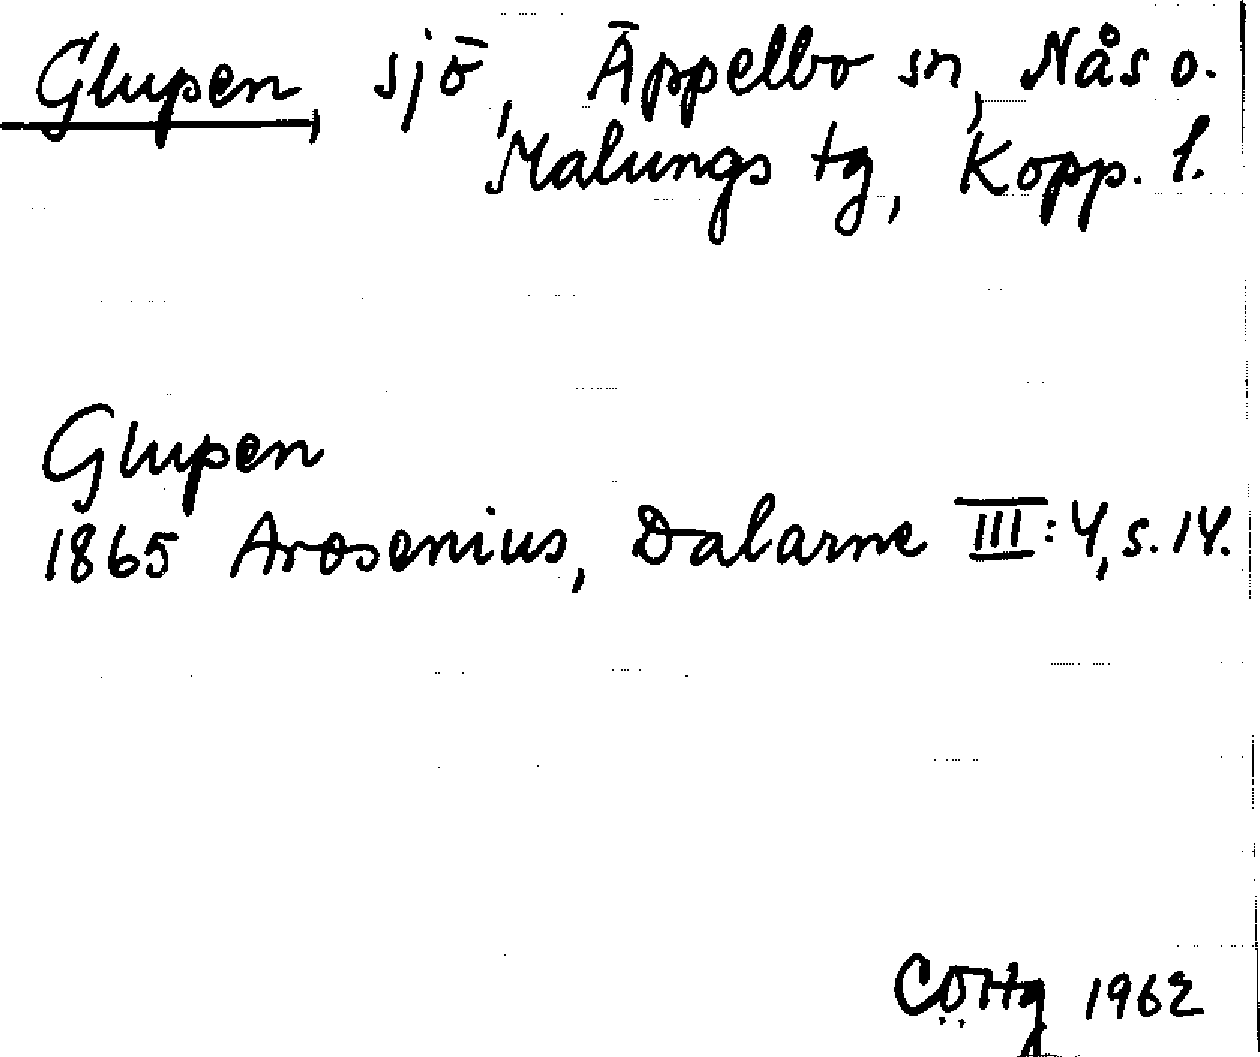 Glupen, sjö, Äppelbo sn, Nås o.
Malungs tg, Kopp. l.
Glupen
1865 Arosenius, Dalarne III:4, s. 14.
CÖHg 1962